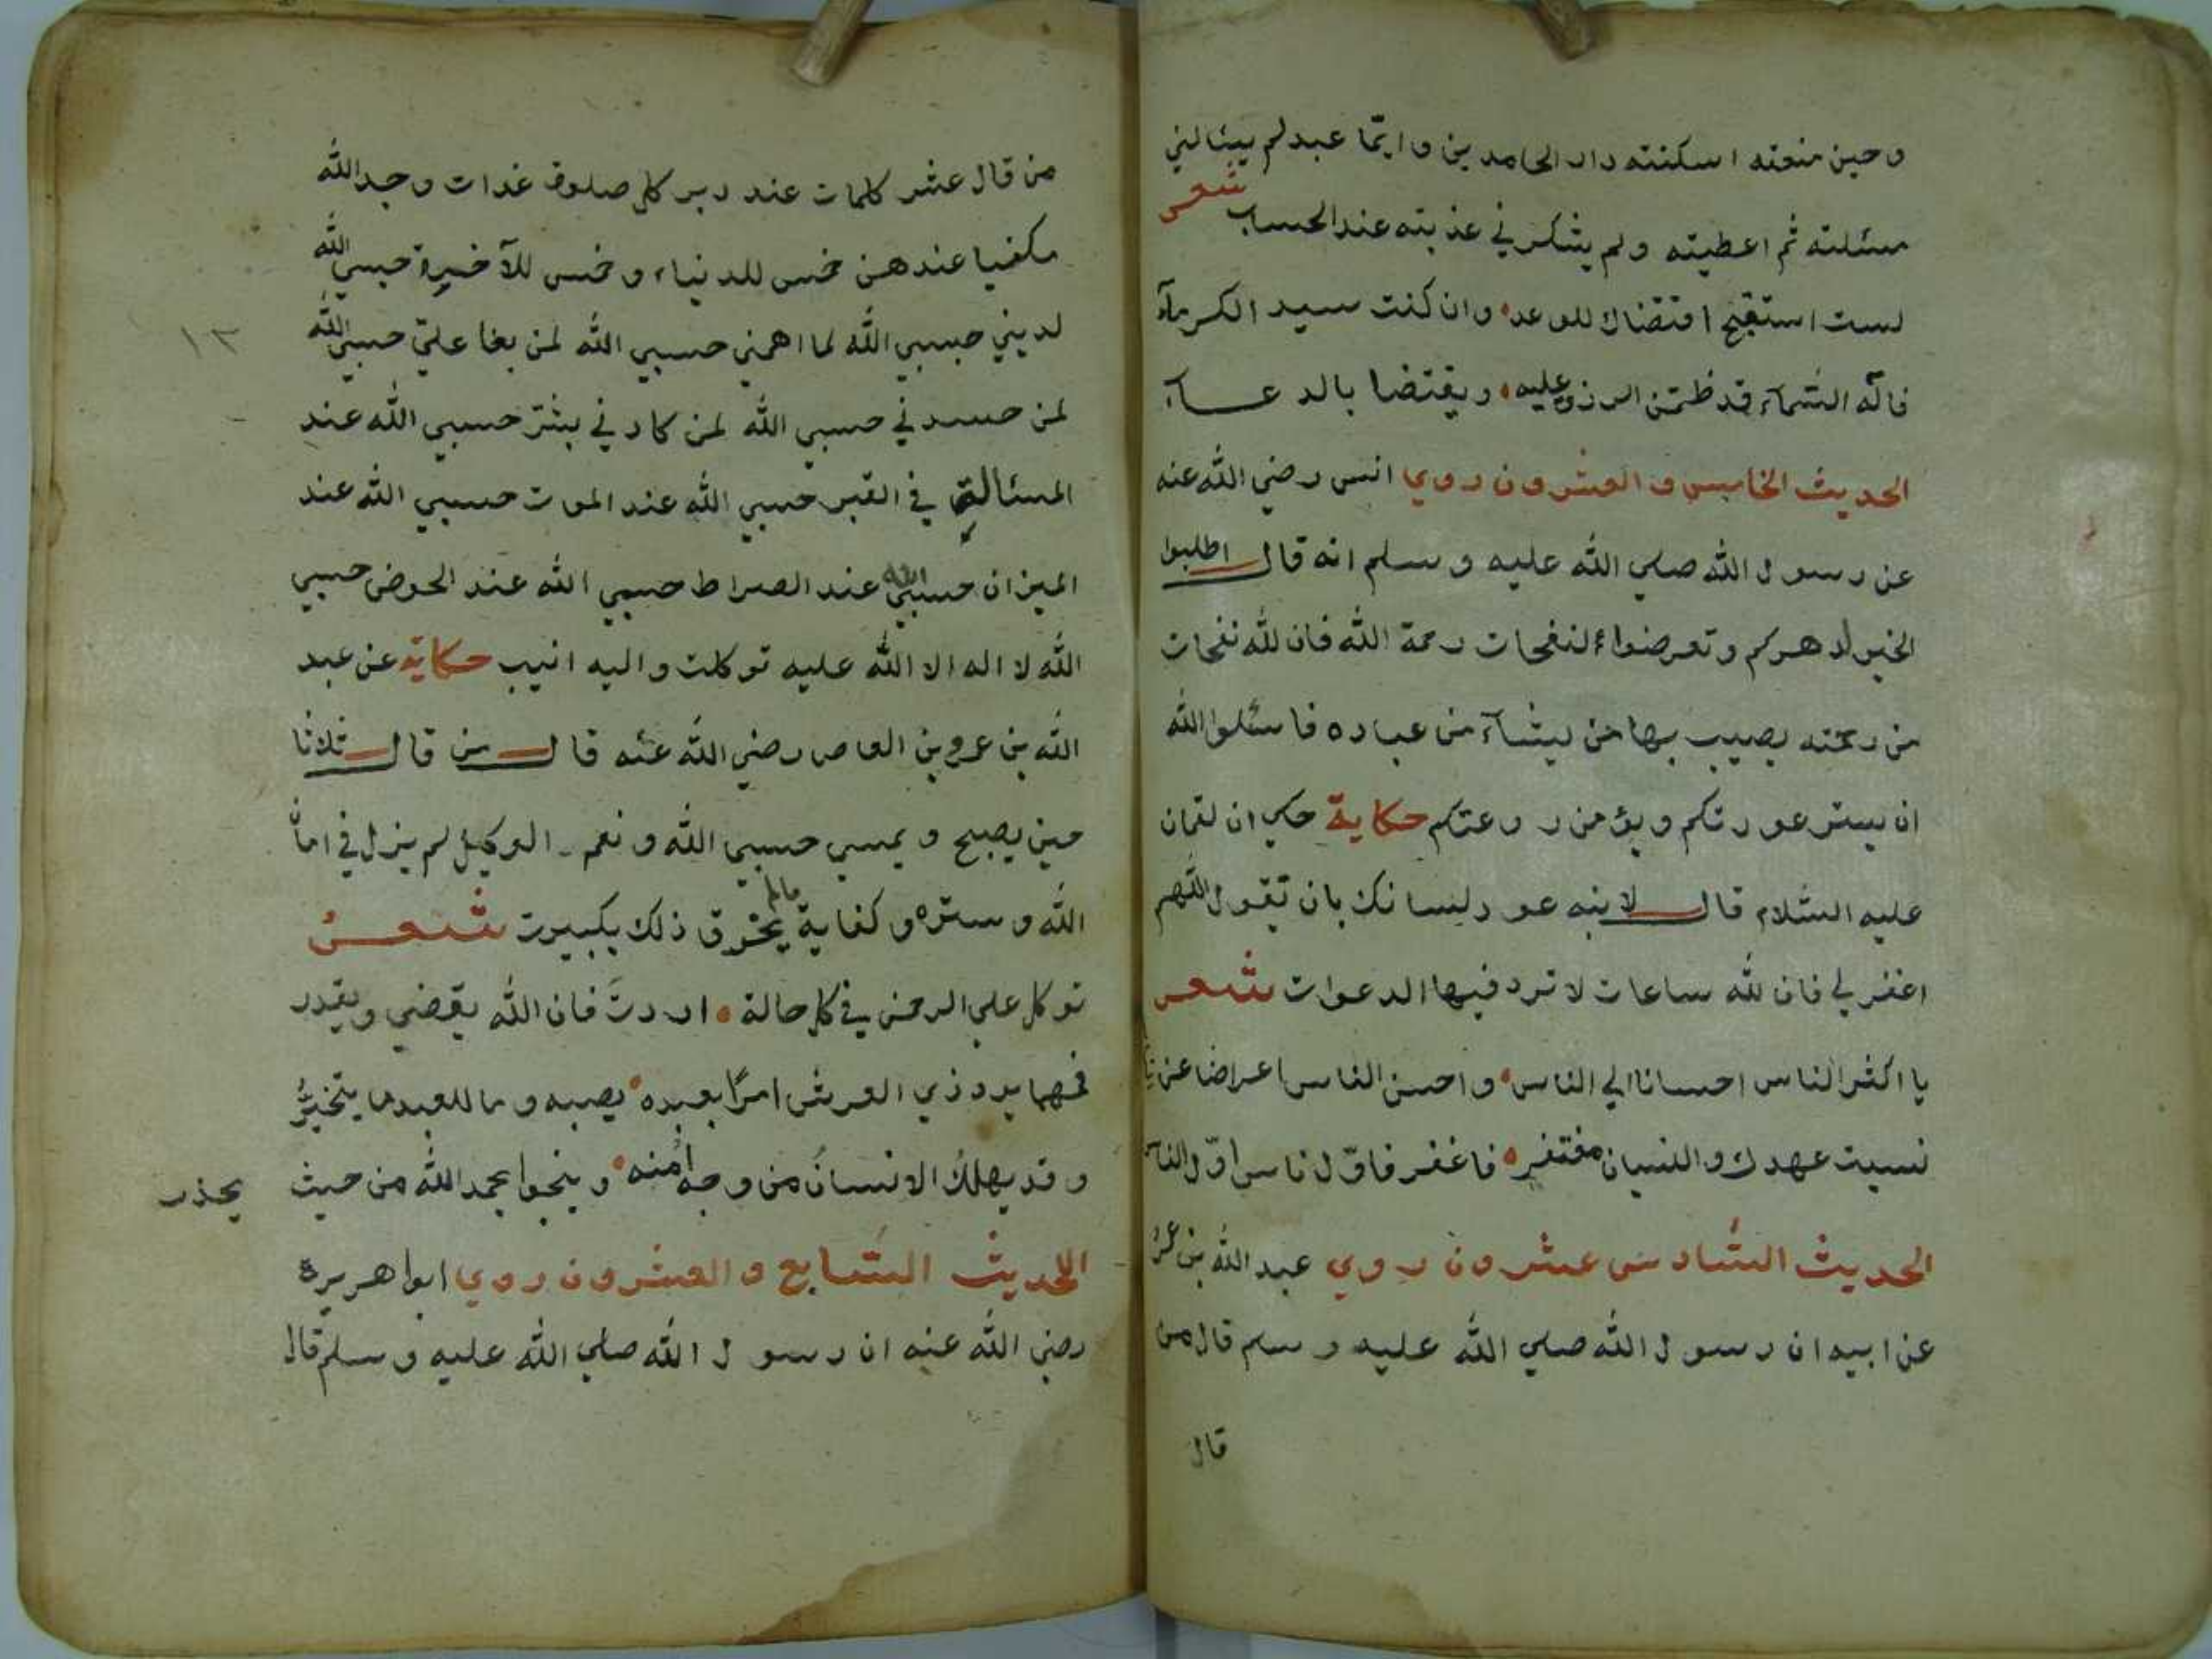 وحين منعته اسكنته دار الحامدين وايّما عبد لم يسالني
مسئلته ثم اعطيته ولم يشكرني عذبته عند الحساب شعر
لست استقبح اقتضاك للوعد وان كنت سيد الكرمآء
فاله السّمآء قد ضمن الرزق عليه ويقتضا بالدعــآء
الحديث الخامس والعشرون روي انس رضي اللّه عنه
عن رسول اللّه صلي اللّه عليه وسلم انه قال اطلبوا
الخير لدهركم وتعرضوا لنفحات رحمة اللّه فان للّه نفحات
من رحمته يصيب بها من يشآء من عباده فاسئلوا اللّه
ان يستر عورتكم ويؤمن روعتكم حكاية حكي ان لقمان
عليه السّلام قال لابنه عود لسانك بان تقول اللّهم
اغفر لي فان للّه ساعات لا ترد فيها الدعوات شعر
يا اكثر الناس احسانا الي الناس واحسن الناس اعراضا عن
نسيت عهدك والنسيان مغتفر فاغفر فاوّل ناس اوّل الناس
الحديث السّادس عشرون روي عبد اللّه بن عمر
عن ابيه ان رسول اللّه صلي اللّه عليه وسلم قال من
قال
من قال عشر كلمات عند دبر كل صلوة غدات وجد اللّه
مكفيا عندهن خمس للدنياء وخمس للآخرة حسبي اللّه
لديني حسبي اللّه لما اهمني حسبي اللّه لمن بغا عليّ حسبي اللّه
لمن حسدني حسبي اللّه لمن كادني بشرّ حسبي اللّه عند
المسئالة في القبر حسبي اللّه عند الموت حسبي اللّه عند
الميزان حسبي اللّه عند الصراط حسبي اللّه عند الحوض حسبي
اللّه لا اله الا اللّه عليه توكلت واليه انيب حكاية عن عبد
اللّه بن عمرو بن العاص رضي اللّه عنه قال من قال ثلاثا
حين يصبح ويمسي حسبي اللّه ونعم الوكيل لم يزل في امان
اللّه وستره وكفاية مالم يخرق ذلك بكبيرت شعــر
توكل علي الرحمن في كل حالة اردتَ فان اللّه يقضي ويقدر
فمهما يرد ذي العرش امرًا بعبده يصبه وما للعبد ما يتخيّر
وقد يهلك الانسانُ من وجه امنه وينجوا بحمد اللّه من حيث يحذر
اللحديث السّابع والعشرون روي ابوا هريرة
رضي اللّه عنه ان رسول اللّه صلي اللّه عليه وسلم قال
١٣